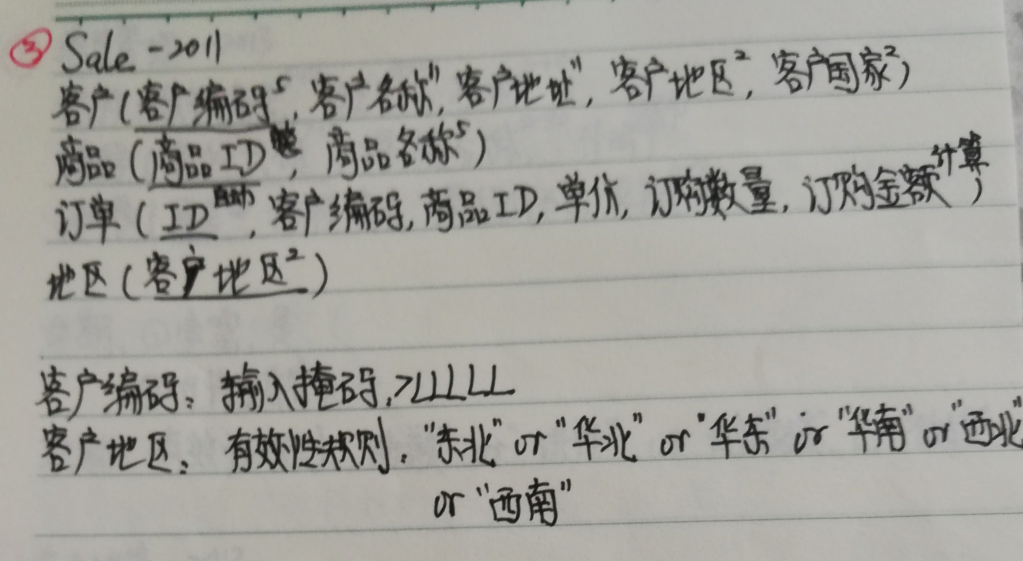 ③ Sale -2011
客户(客户编码⁵, 客户名称¹¹, 客户地址¹¹, 客户地区², 客户国家²)
商品(商品ID, 商品名称⁵)
订单(ID自动, 客户编码, 商品ID, 单价, 订购数量, 订购金额计算)
地区(客户地区²)
客户编码: 输入掩码, >LLLLL
客户地区: 有效性规则. "东北" or "华北" or "华东" or "华南" or "西北"
or "西南"